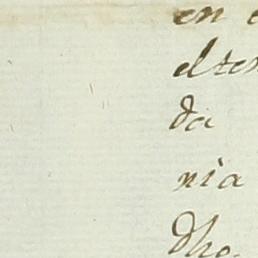 en
el ten
da
nia
dho.